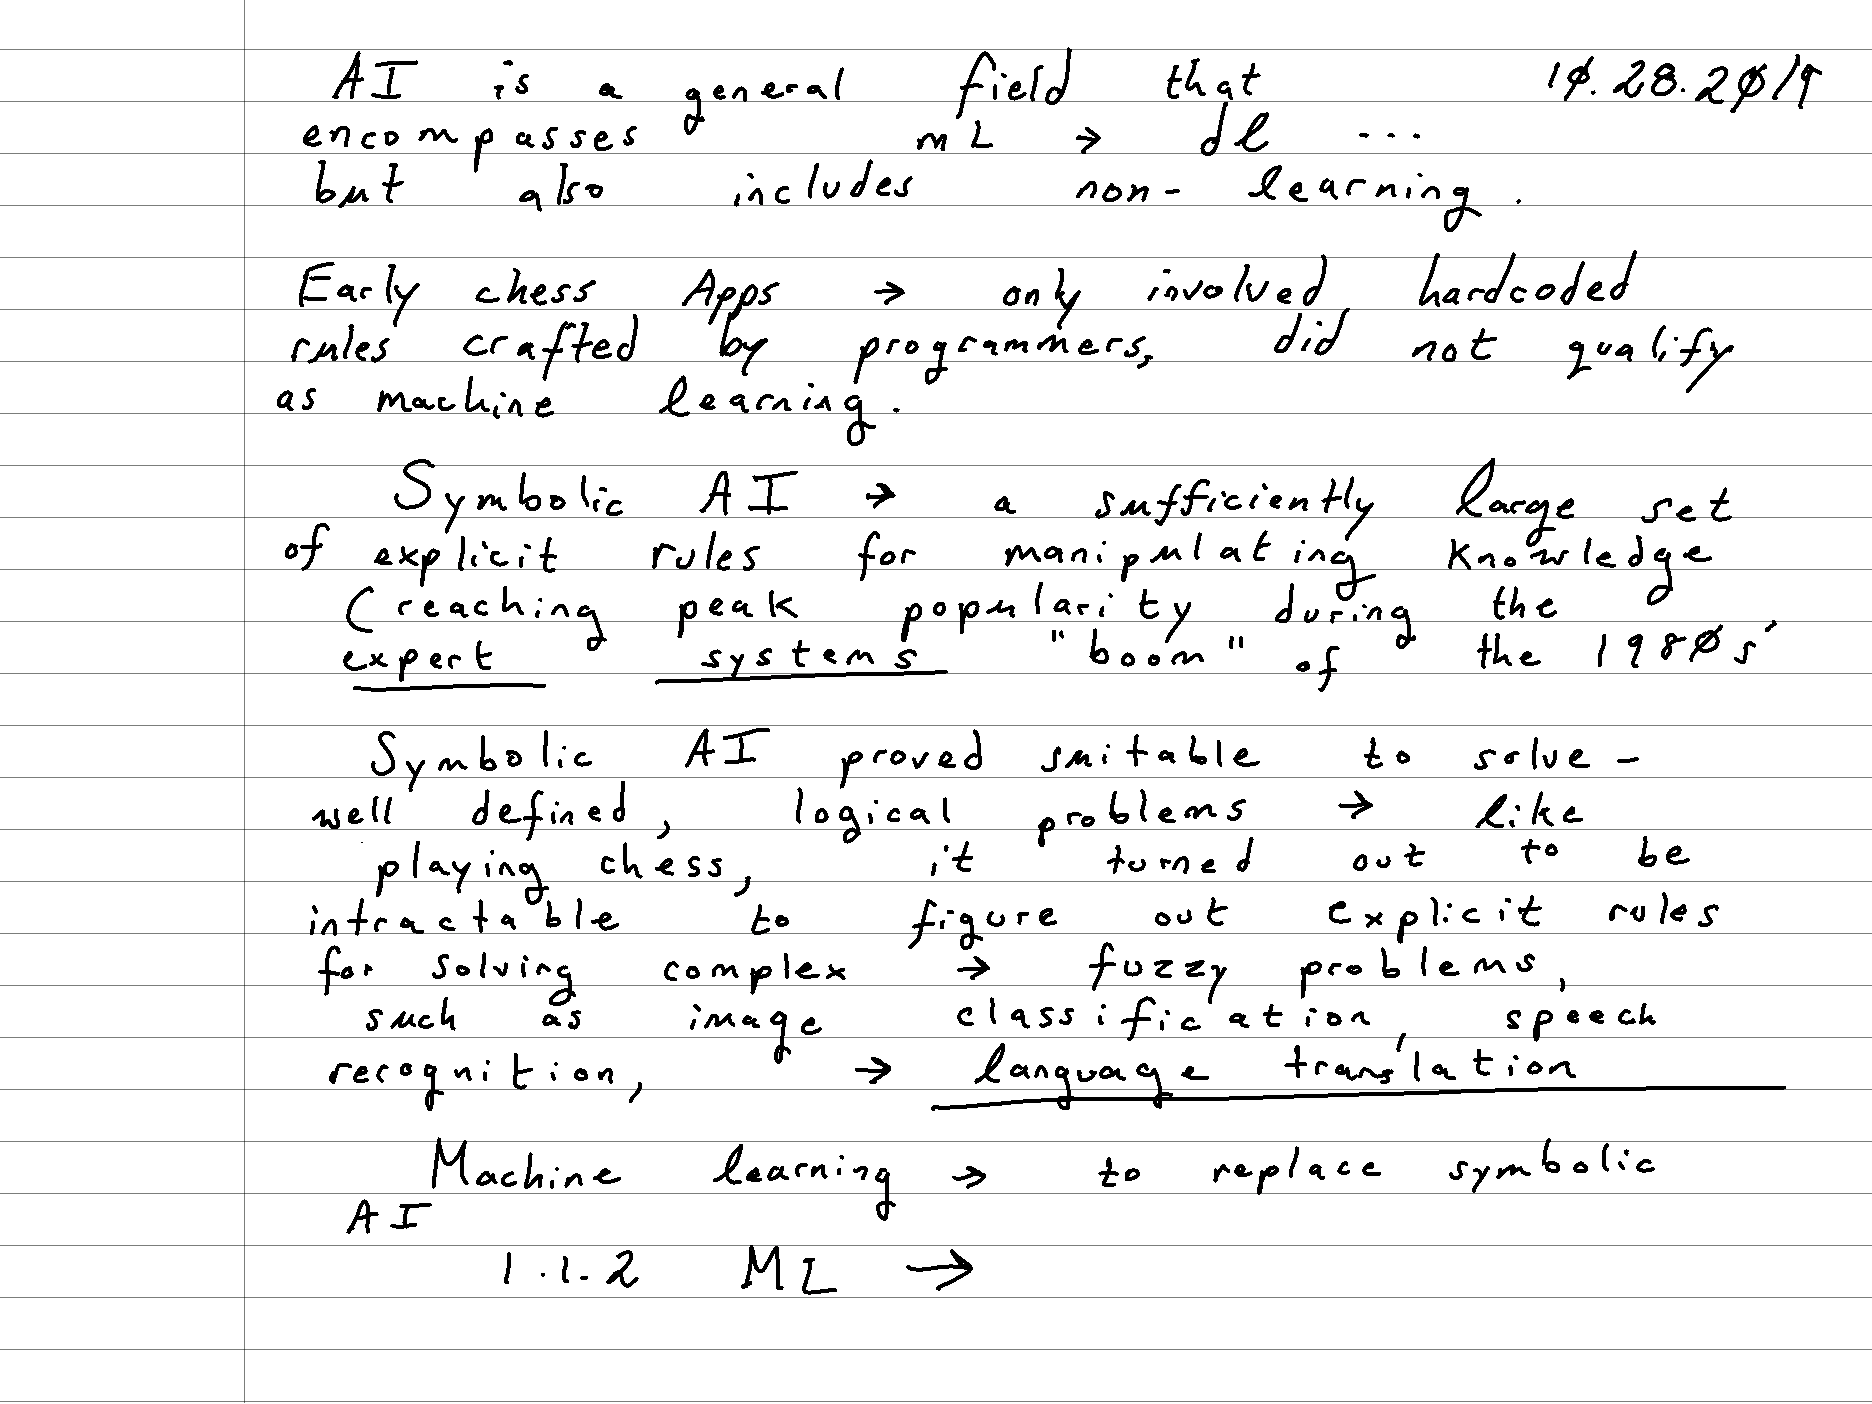 AI is a general field that 10.28.2019
encompasses mL → dl ...
but also includes non- learning.
Early chess Apps → only involved hardcoded
rules crafted by programmers, did not qualify
as machine learning.
Symbolic AI → a sufficiently large set
of explicit rules for manipulating knowledge
(reaching peak popularity during the
expert systems "boom" of the 1980s'
Symbolic AI proved suitable to solve -
well defined, logical problems → like
playing chess, it turned out to be
intractable to figure out explicit rules
for solving complex → fuzzy problems,
such as image classification, speech
recognition, → language translation
Machine learning → to replace symbolic
AI
1.1.2 ML →